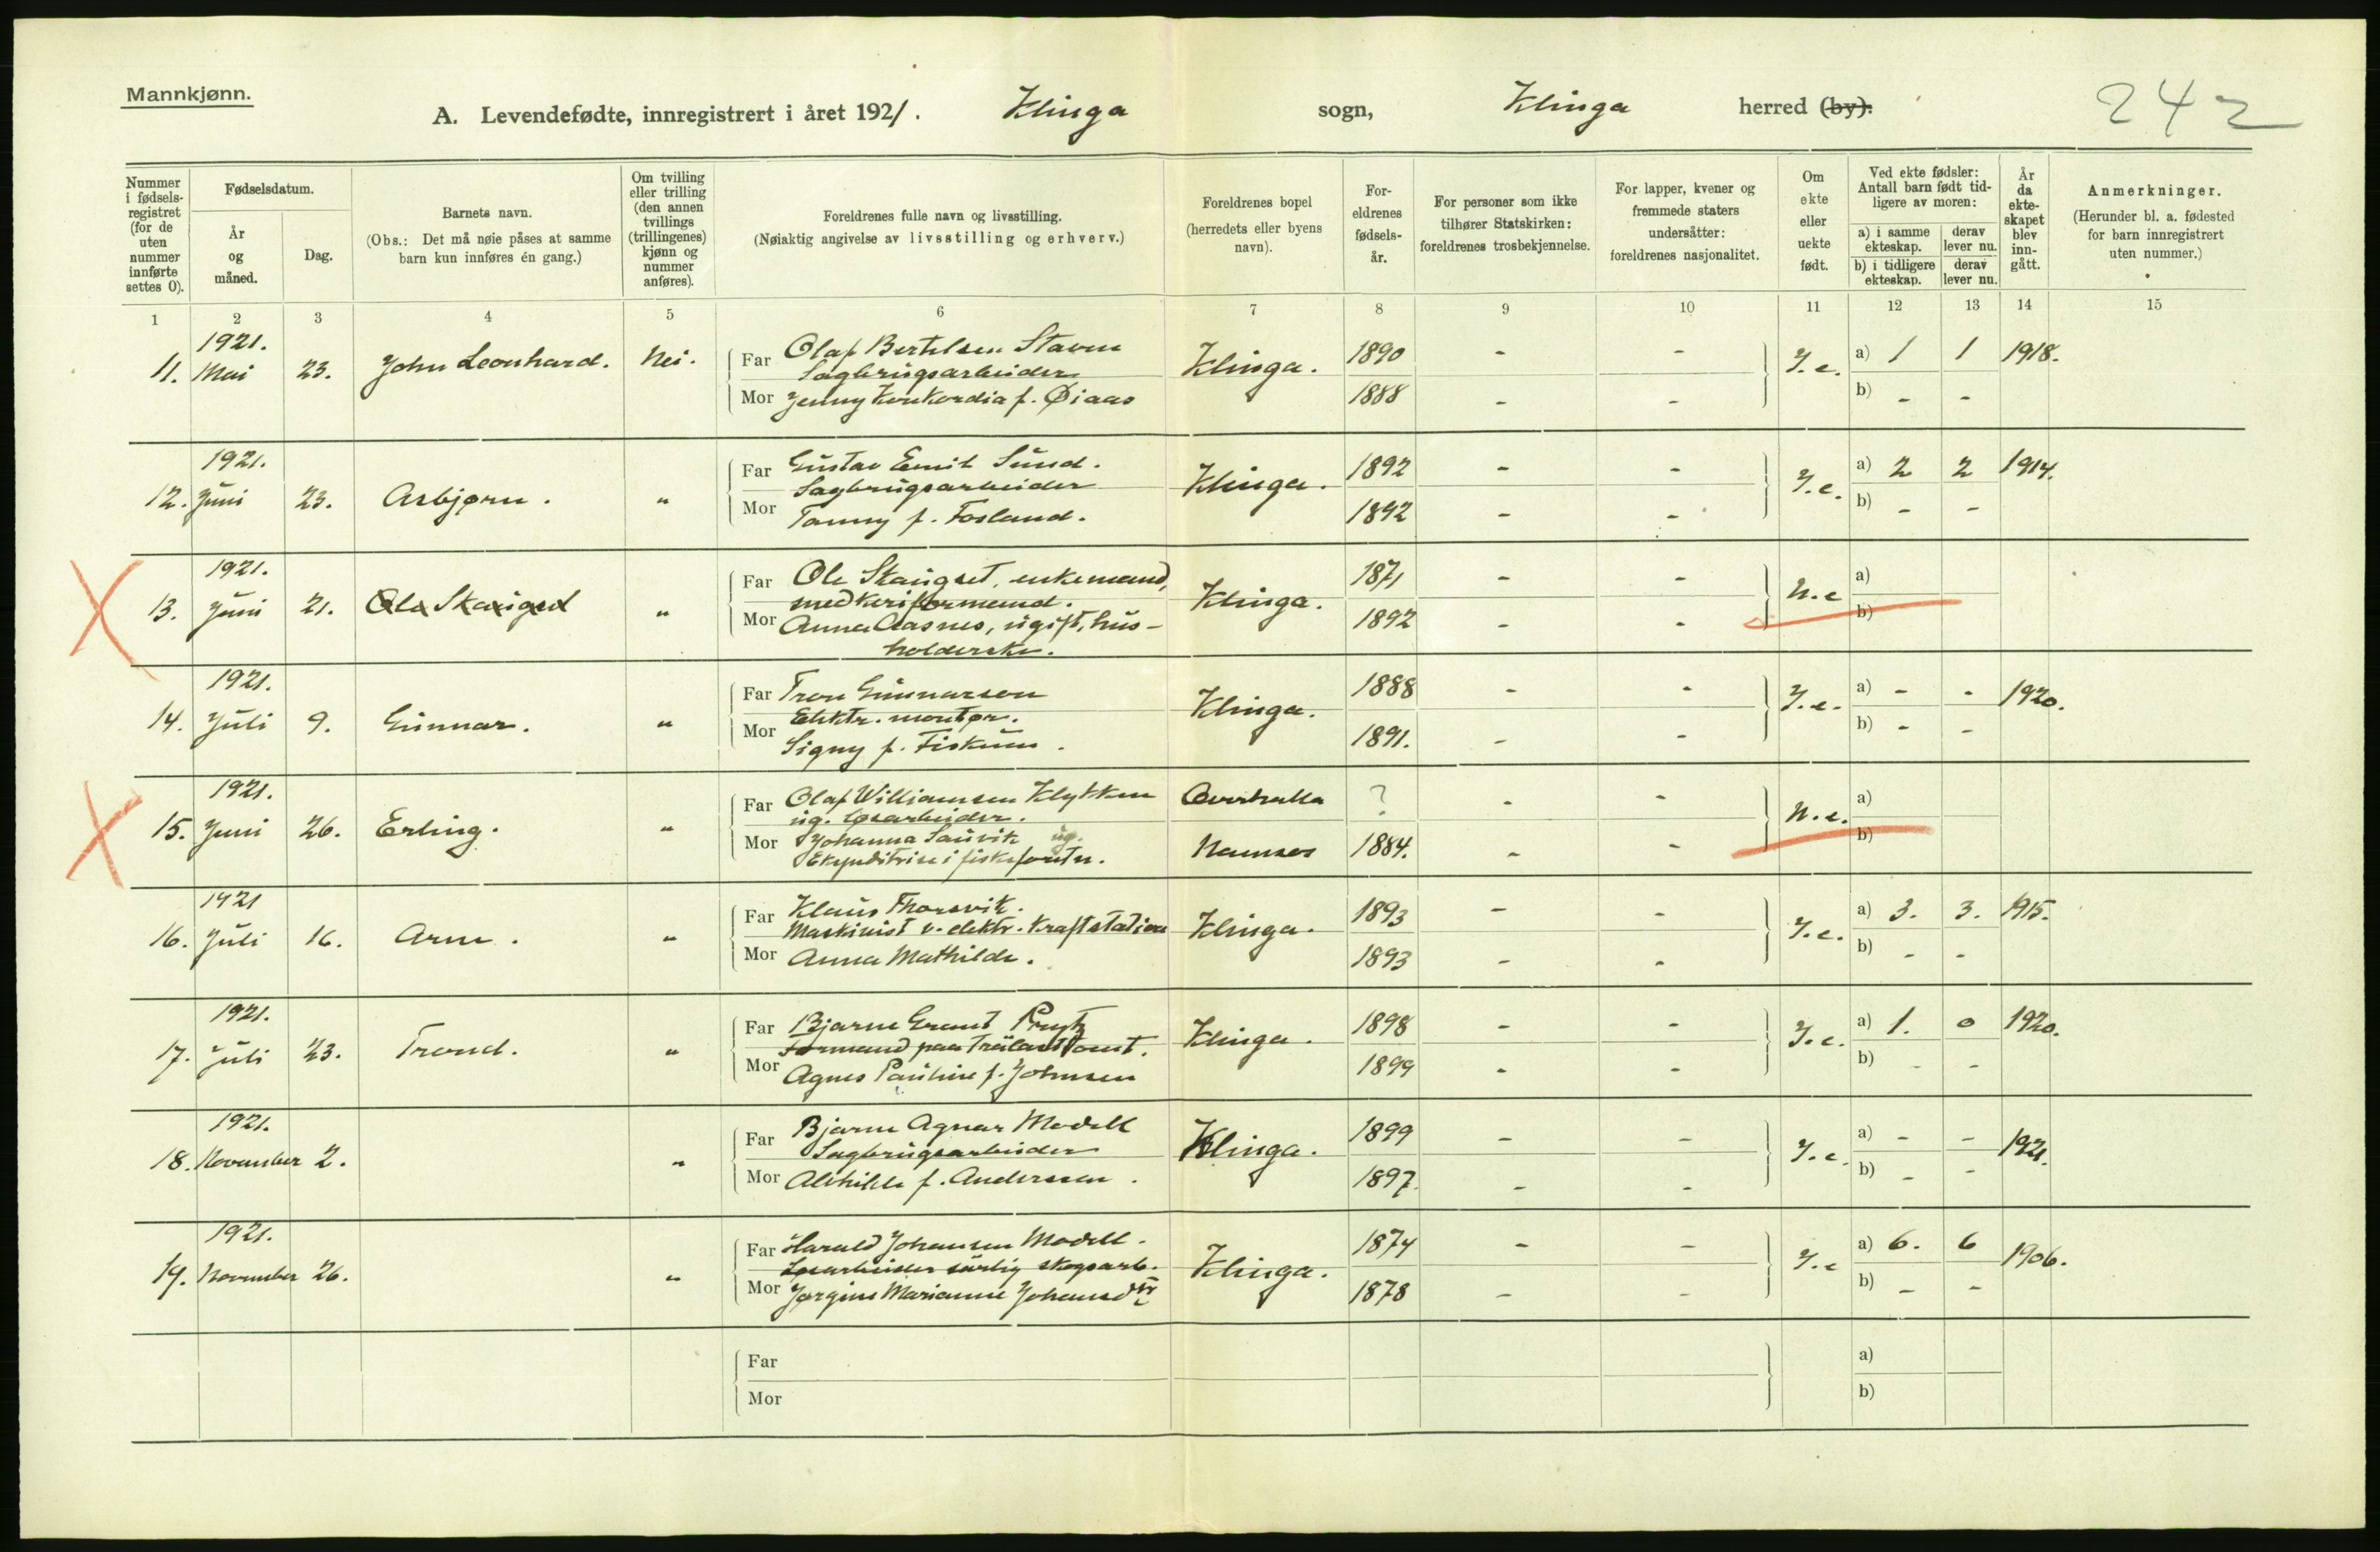 Mannkjønn.
A. Levendefødte, innregistrert i året 1921. Klinga sogn, Klinga herred (by). 242
Nummer i fødsels-registret (for de uten nummer innførte settes 0).
Fødselsdatum.
År og måned.
Dag.
Barnets navn.
(Obs.: Det må nøie påses at samme barn kun innføres én gang.)
Om tvilling eller trilling (den annen tvillings (trillingenes) kjønn og nummer anføres).
Foreldrenes fulle navn og livsstilling.
(Nøiaktig angivelse av livsstilling og erhverv.)
Foreldrenes bopel (herredets eller byens navn).
For-eldrenes fødsels-år.
For personer som ikke tilhører Statskirken: foreldrenes trosbekjennelse.
For lapper, kvener og fremmede staters undersåtter: foreldrenes nasjonalitet.
Om ekte eller uekte født.
Ved ekte fødsler: Antall barn født tid-ligere av moren:
a) i samme ekteskap. derav lever nu.
b) i tidligere ekteskap. derav lever nu.
År da ekte-skapet blev inn-gått.
Anmerkninger.
(Herunder bl. a. fødested for barn innregistrert uten nummer.)
1 2 3 4 5 6 7 8 9 10 11 12 13 14 15
1921.
11. Mai 23. John Leonhard. Nei. Far Olaf Bertelsen Staven Klinga. 1890 - - Y.e. a) 1 1 1918.
Sagbrugsarbeider
Mor Jenny Konkordia f. Øiaas 1888 - - b) - -
1921.
12. Juni 23. Asbjørn. " Far Gustav Emil Sund. Klinga. 1892 - - Y.e. a) 2 2 1914.
Sagbrugsarbeider
Mor Fanny f. Fosland. 1892 - - b) - -
1921.
13. Juni 21. Ola Skauget " Far Ole Skauget, enkemand, Klinga. 1871 - - U.e a)
snedkeriformand.
Mor Anna Aasnes, ugift, hus- 1892 - - b)
holderske.
1921.
14. Juli 9. Gunnar. " Far Tron Gunnarson Klinga. 1888 - - Y.e. a) - - 1920.
Elektr. montør.
Mor Signy f. Fiskum. 1891. - - b) - -
1921.
15. Juni 26. Erling. " Far Olaf Williamsen Klykken Overhalla ? - - U.e. a)
ug. løsarbeider.
Mor Johanna Sauvik ug. Namsos 1884. - - b)
Ekspeditrise i
1921
16. Juli 16. Arne. " Far Klaus Thorsvik. Klinga. 1893 - - Y.e. a) 3. 3. 1915.
Maskinist v. elektr. Kraftstation
Mor Anna Mathilde. 1893 - - b) - -
1921.
17. Juli 23. Trond. " Far Bjarne Grant Prytz Klinga. 1898 - - Y.e. a) 1. 0 1920.
Formand paa Trælasttomt.
Mor Agnes Pauline f. Johnsen 1899 - - b) - -
1921.
18. November 2. " Far Bjarne Agnar Modell Klinga. 1899 - - Y.e. a) - - 1921.
Sagbrugsarbeider
Mor Alvhilde f. Anderssen. 1897. - - b) - -
1921.
19. November 26. " Far Harald Johansen Modell. Klinga. 1874 - - Y.e a) 6. 6 1906.
Løsarbeider særlig skogsarb.
Mor Jørgine Marianne Johansdtr 1878 - - b) - -
Far a)
Mor b)